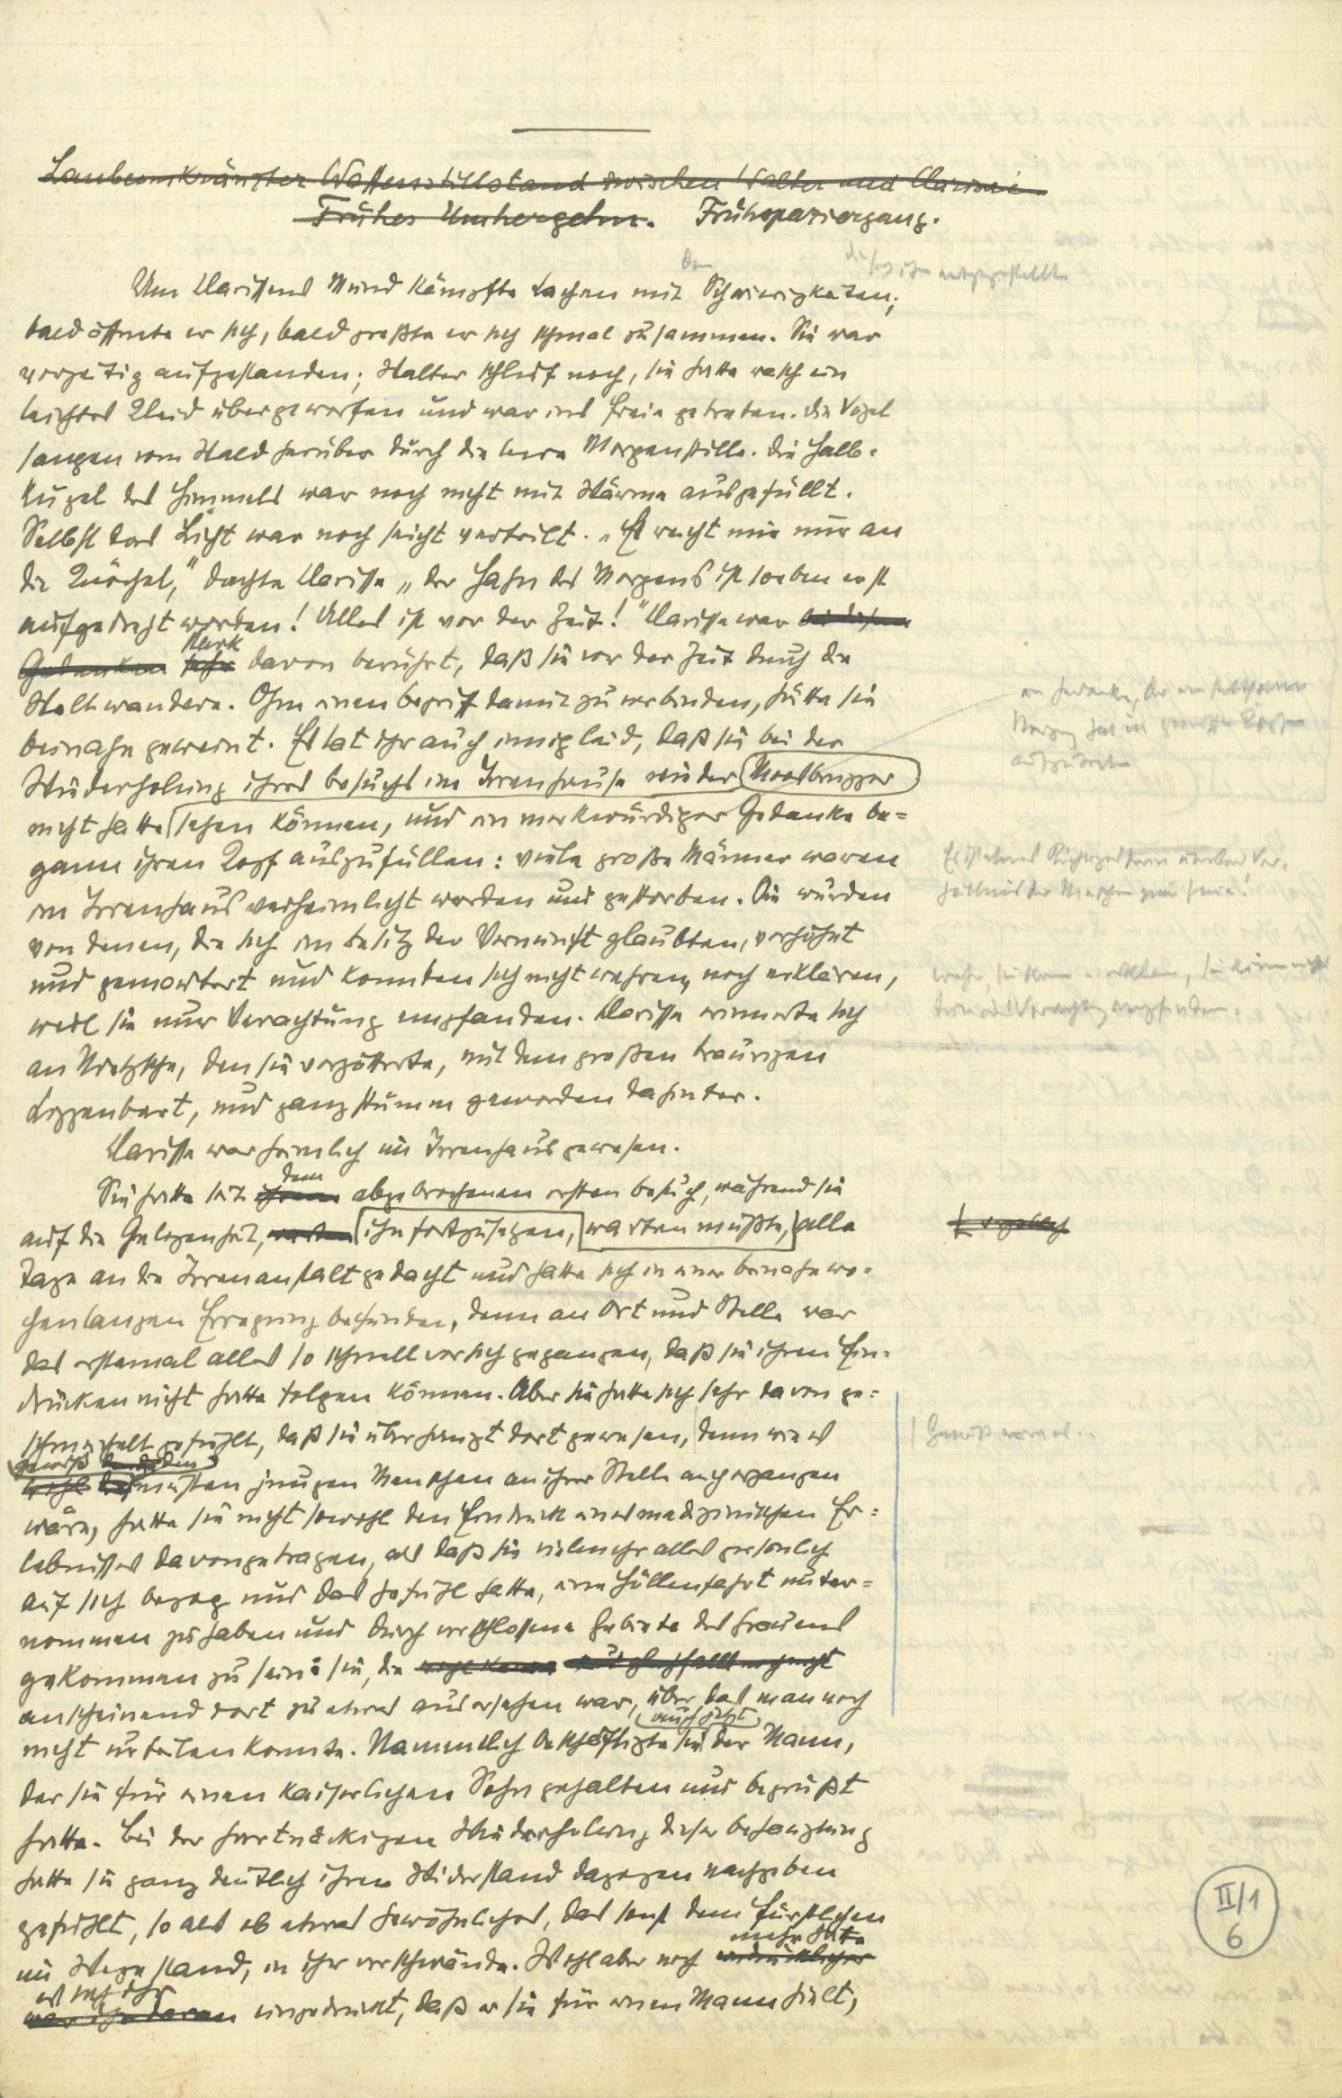 Laubenumkränzter Waffenstillstand zwischen Walter und Clarisse
Frühes Umhergehn. Frühspaziergang.
den die sich ihm entgegenstellten
Um Clarissens Mund kämpfte Lachen mit Schwierigkeiten;
bald öffnete er sich, bald preßte er sich schmal zusammen. Sie war
vorzeitig aufgestanden; Walter schlief noch, sie hatte rasch ein
leichtes Kleid übergeworfen und war ins Freie getreten. Die Vögel
sangen vom Wald herüber durch die leere Morgenstille. Die Halb-
kugel des Himmels war noch nicht mit Wärme ausgefüllt.
Selbst das Licht war noch seicht verteilt. „Es reicht mir nur an
die Knöchel," dachte Clarisse „der Hahn des Morgens ist soeben erst
aufgedreht worden! Alles ist vor der Zeit!" Clarisse war bei diesem
stark
Gedanken sehr davon berührt, daß sie vor der Zeit durch die
Welt wandere. Ohne einen Begriff damit zu verbinden, hätte sie
beinahe geweint. Es tat ihr auch innig leid, daß sie bei der
Wiederholung ihres Besuchs im Irrenhause wieder Moosbrugger
nicht hatte sehen können, und ein merkwürdiger Gedanke be-
gann ihren Kopf auszufüllen: viele große Männer waren
im Irrenhaus verheimlicht worden und gestorben. Sie wurden
von denen, die sich im Besitz der Vernunft glaubten, verhöhnt
und gemartert und konnten sich nicht wehren, noch erklären,
weil sie nur Verachtung empfanden. Clarisse erinnerte sich
an Nietzsche, den sie vergötterte, mit dem großen traurigen
Lippenbart, und ganz stumm geworden dahinter.
Clarisse war heimlich im Irrenhaus gewesen.
dem
Sie hatte seit ihrem abgebrochenen ersten Besuch, während sie
auf die Gelegenheit, warten ihn fortzusetzen, warten mußte, alle
Tage an die Irrenanstalt gedacht und hatte sich in einer beinahe wo-
chenlangen Erregung befunden, denn an Ort und Stelle war
das erstemal alles so schnell vor sich gegangen, daß sie ihren Ein-
drücken nicht hatte folgen können. Aber sie hatte sich sehr davon ge-
schmeichelt gefühlt, daß sie überhaupt dort gewesen, denn wie es
gewiß den
wohl meisten jungen Menschen an ihrer Stelle auch ergangen
wäre, hatte sie nicht sowohl den Eindruck eines medizinischen Er-
lebnisses davongetragen, als daß sie vielmehr alles persönlich
auf sich bezog und das Gefühl hatte, eine Höllenfahrt unter-
nommen zu haben und durch verschlossene Gebiete des Grauens
gekommen zu sein: sie, die
anscheinend dort zu etwas ausersehen war, über das man noch
auch jetzt
nicht urteilen konnte. Namentlich beschäftigte sie der Mann,
der sie für einen kaiserlichen Sohn gehalten und begrüßt
hatte. Bei der hartnäckigen Wiederholung dieser Behauptung
hatte sie ganz deutlich ihren Widerstand dagegen nachgeben
gefühlt, so als ob etwas Gewöhnliches, das sonst dem Fürstlichen
mehr hatte
im Wege stand, in ihr verschwände. Wohl aber noch eindrücklicher
es sich ihr
war ihr daran eingedrückt, daß er sie für einen Mann hielt,
II/1
6